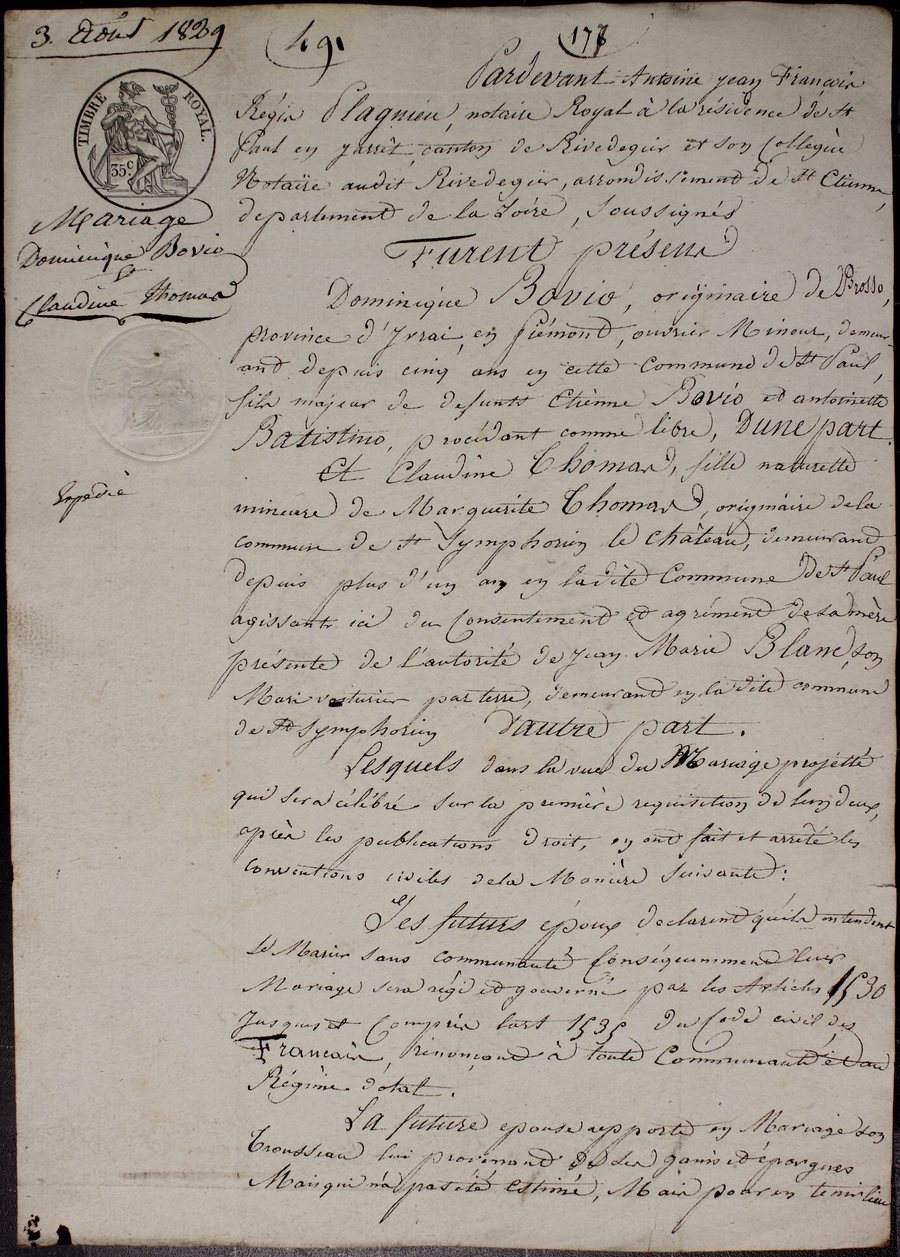 3. Août 1829
491
178
TIMBRE ROYAL.
35 c
Mariage
Dominique Bovio
et
Claudine Thomas
Expédié
Pardevant Antoine jean François
Régis Plagnieu, notaire Royal à la résidence de St
Paul en jarrêt, canton de Rivedegier et son Collègue
Notaire audit Rivedegier, arrondissement de St Etienne,
departement de la Loire, soussignés
Furent présens
Dominique Bovio, originaire de Brosso,
province d'Yvrai, en Piémont, ouvrier Mineur, demeur-
ant depuis cinq ans en cette commune de St Paul,
fils majeur de defunts Etiènne Bovio et antoinette
Batistino, procédant comme libre, D'une part.
Et Claudine Thomas, fille naturelle
mineure de Marguerite Thomas, originaire de la
commune de St Symphorien le château, demeurant
depuis plus d'un an en ladite Commune de St Paul
agissante ici du Consentement et agrément de sa mère
présente de l'autorité de jean Marie Blanc, son
Mari voiturier par terre, demeurand en la dite commune
de St Symphorien D'autre part.
Lesquels dans la vue du Mariage projetté
qui sera célébré sur la première requisition de l'un deux,
après les publications droit, en ont fait et arrêté les
conventions civiles de la Manière suivante:
Les futurs époux declarent qu'ils entendent
se Marier sans communauté Conséquemment leur
Mariage sera régi et gouverné par les Articles 1530
jusques et compris l'art 1535 du Code civil des
Français, rénonçand à toute Communauté et au
Régime dotal.
La future epouse apporte en Mariage son
Trousseau lui provenand de ses gains et épargnes
Mais qui n'a pas été estimé, Mais pour en tenir lieu